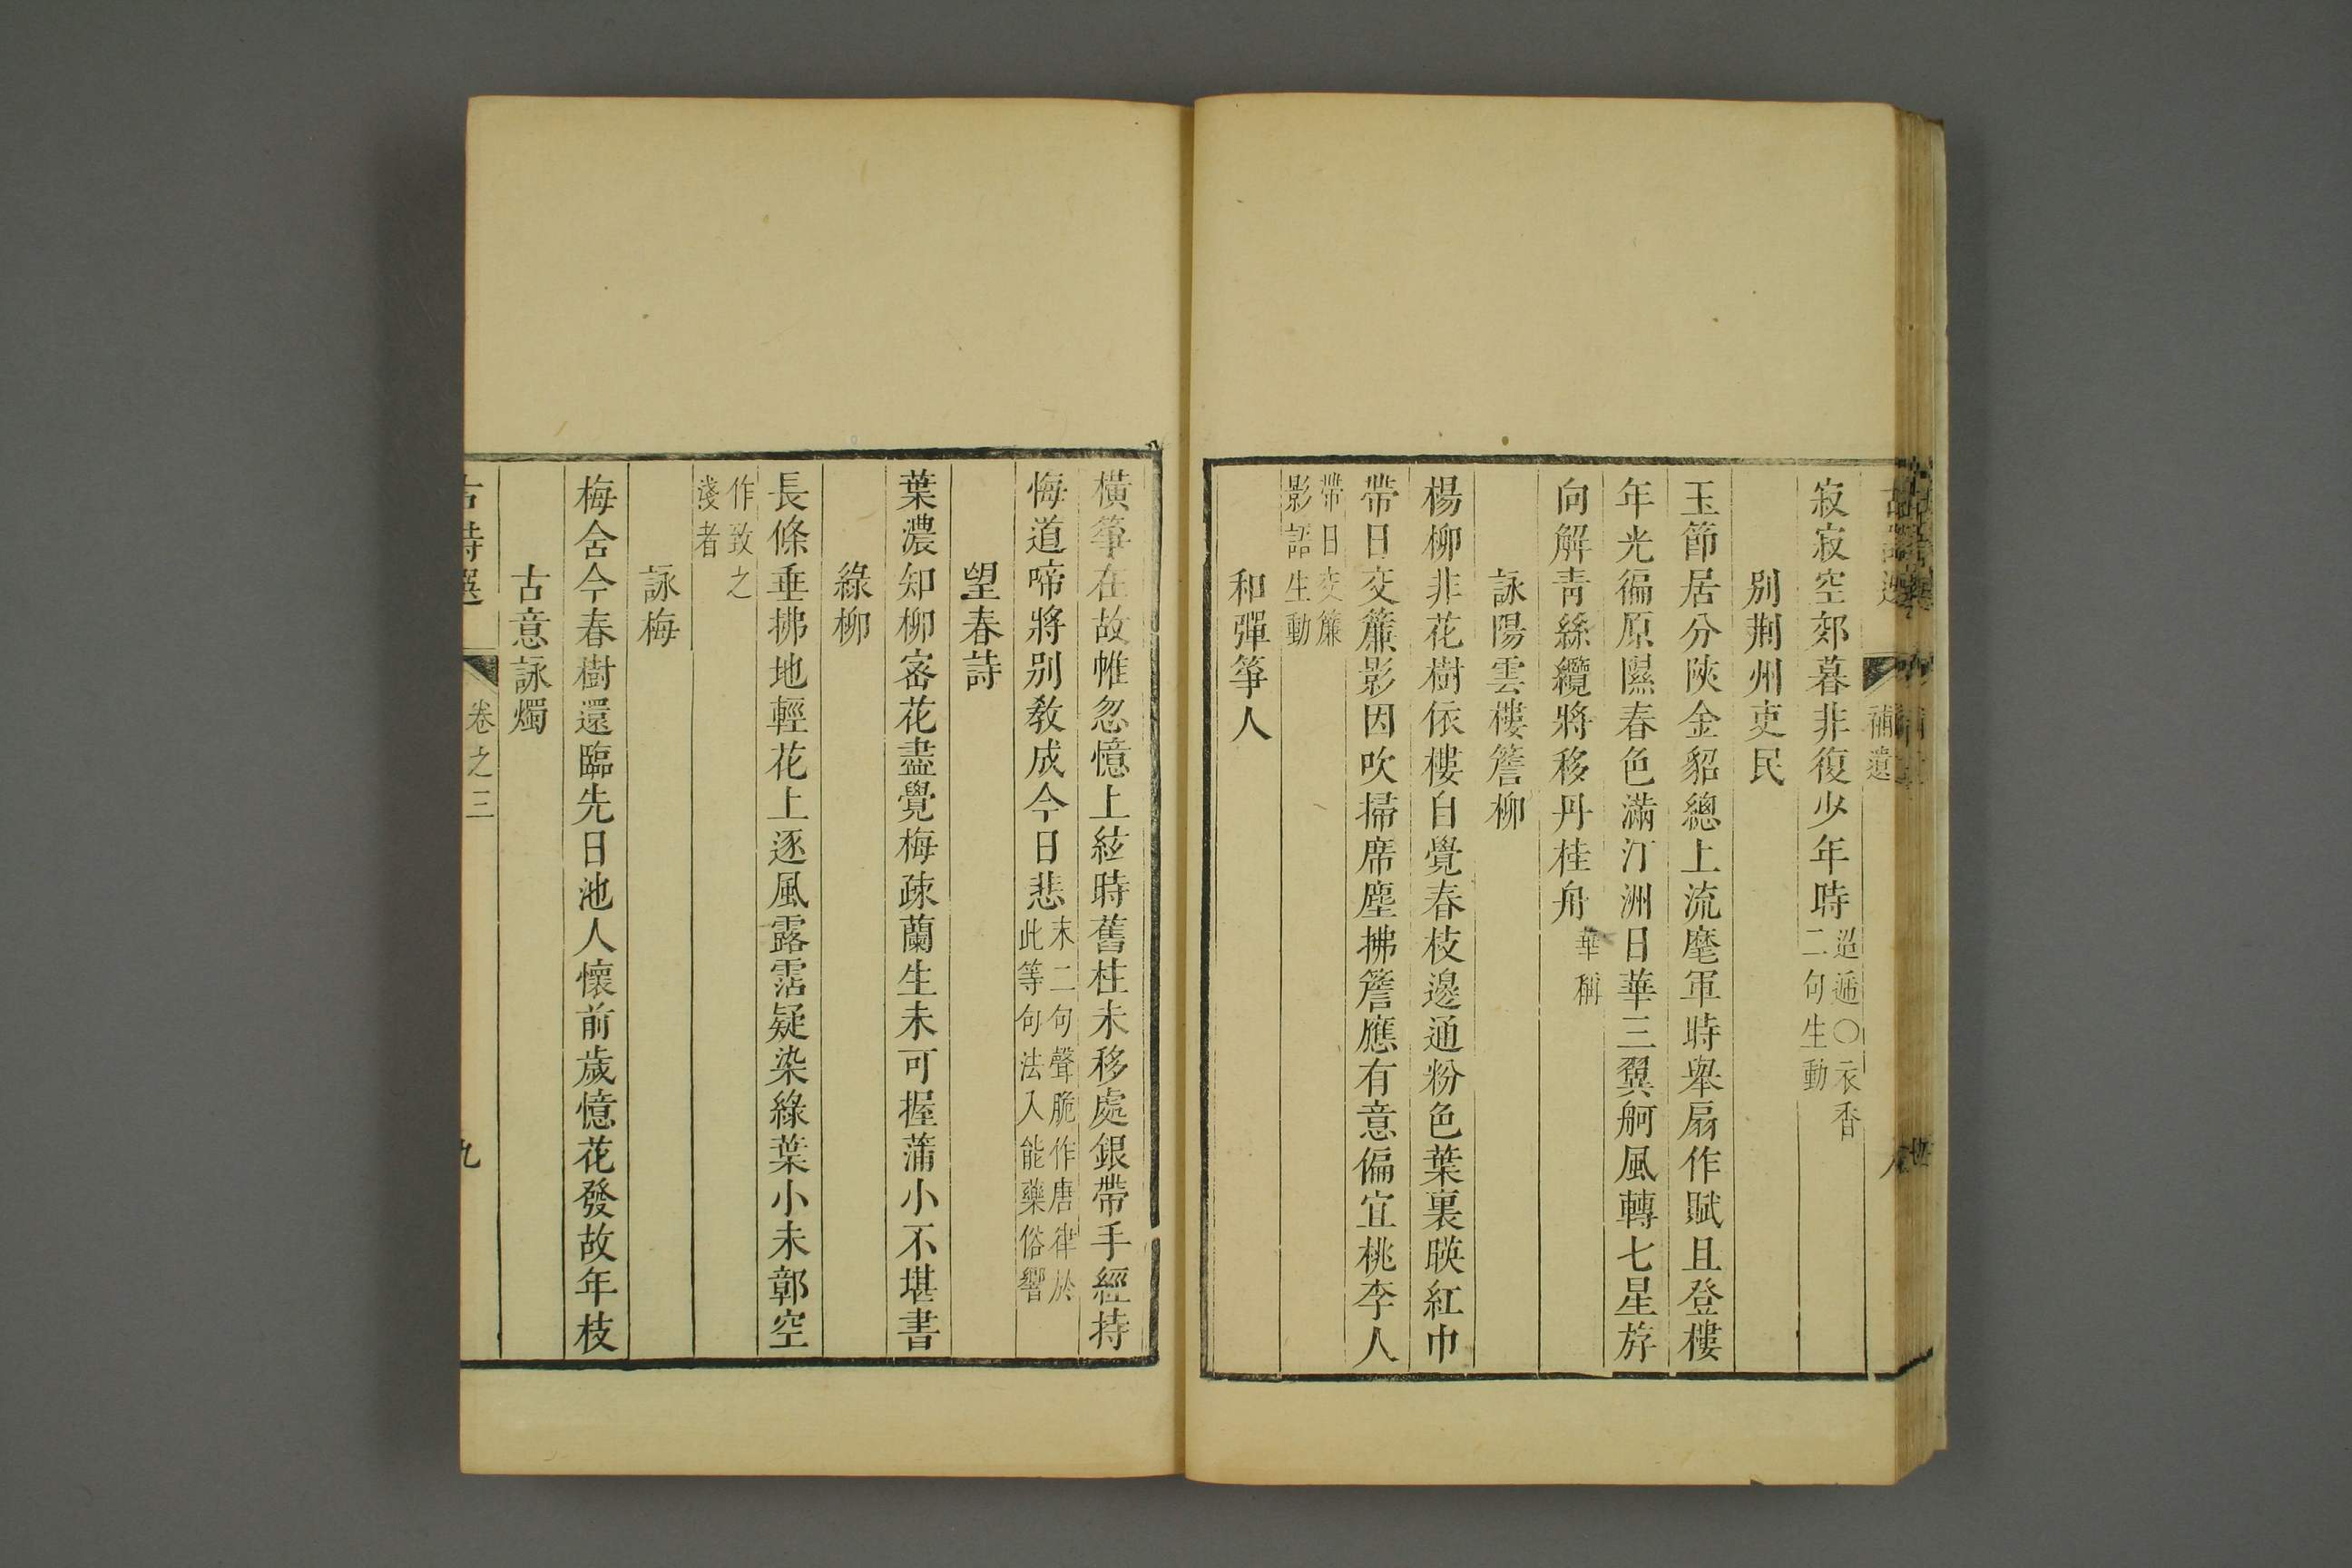 補遺
寂寂空郊暮非復少年時迢遞〇衣香二句生動
別荆州吏民
玉節居分陜金貂總上流麾軍時舉扇作賦且登樓
年光徧原隰春色滿汀洲日華三翼舸風轉七星斿
向解青絲纜將移丹桂舟華稱
詠陽雲樓簷柳
楊柳非花樹依樓自覺春枝邊通粉色葉裏暎紅巾
帶日交簾影因吹掃席塵拂簷應有意偏宜桃李人
帶日交簾影語生動
和彈箏人
橫箏在故帷忽憶上絃時舊柱未移處銀帶手經持
悔道啼將別教成今日悲末二句聲脆作唐律於此等句法入能藥俗響
望春詩
葉濃知柳宻花盡覺梅疎蘭生未可握蒲小不堪書
綠柳
長條垂拂地輕花上逐風露霑疑染綠葉小未鄣空
作致之淺者
詠梅
梅含今春樹還臨先日池人懷前歲憶花發故年枝
古意詠燭
古詩選 卷之三 九